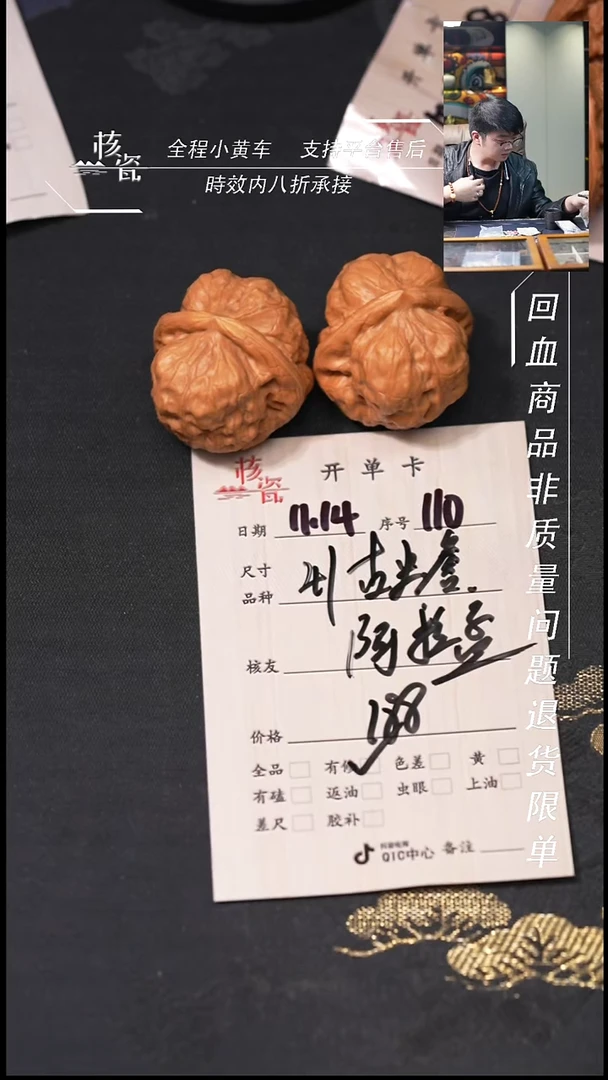 核瓷
全程小黄车 支持平台售后
時效内八折承接
回血商品非质量问题退货限单
核瓷
开单卡
日期 11.14 序号 110
尺寸
品种 41
核友
价格 188
全品 有修 色差 黄
有磕 返油 虫眼 上油
差尺 胶补
抖音电商
QIC中心 备注